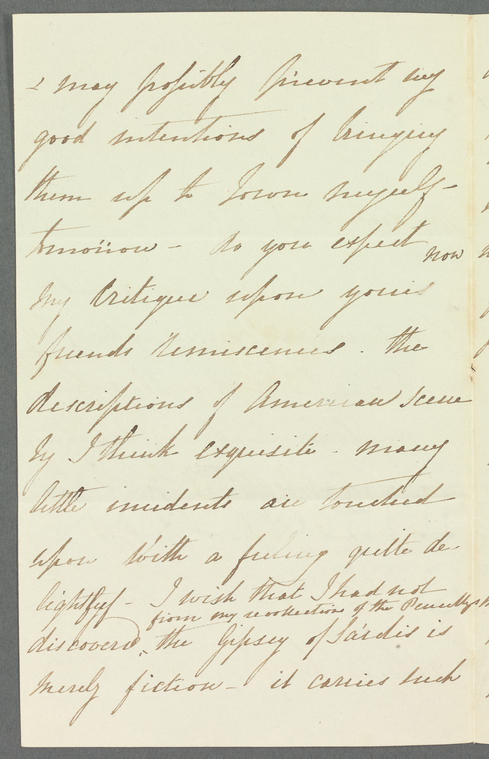 & may possibly prevent my
good intentions of bringing
them up to Town myself -
tomorrow - do you expect now
my Critique upon your
friends reminiscences. the
descriptions of American Scene
ry I think exquisite - many
little incidents are touched
upon with a feeling quite de
lightful - I wish that I had not
from my recollection of the
discovered the Gipsey of Sardis is
merely fiction - it carries such